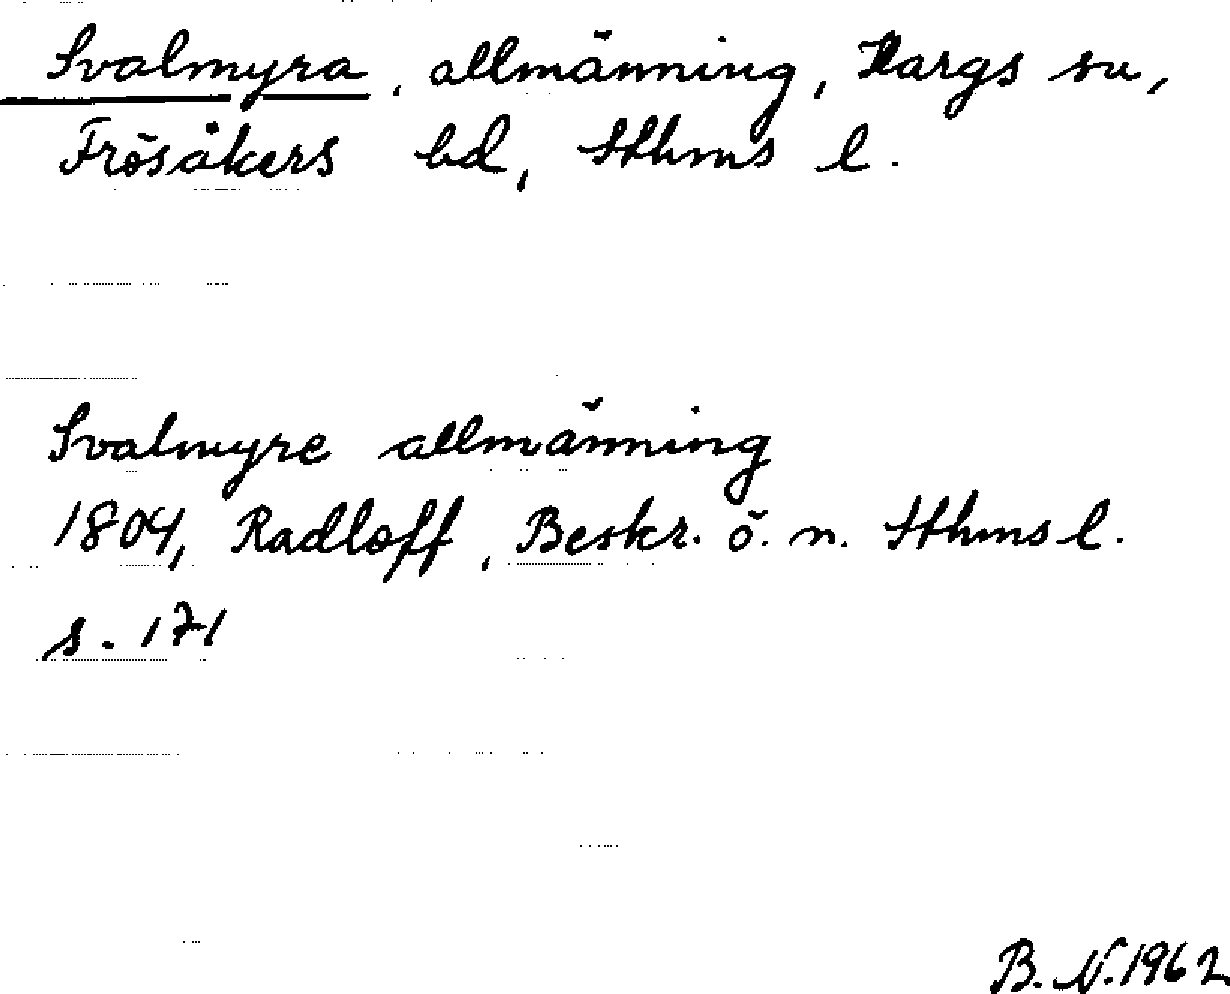 Svalmyra, allmänning, Hargs sn,
Frösåkers hd, Sthms l.
Svalmyre allmänning
1804, Radloff, Beskr. ö. n. Sthms l.
s. 171
B. N. 1962